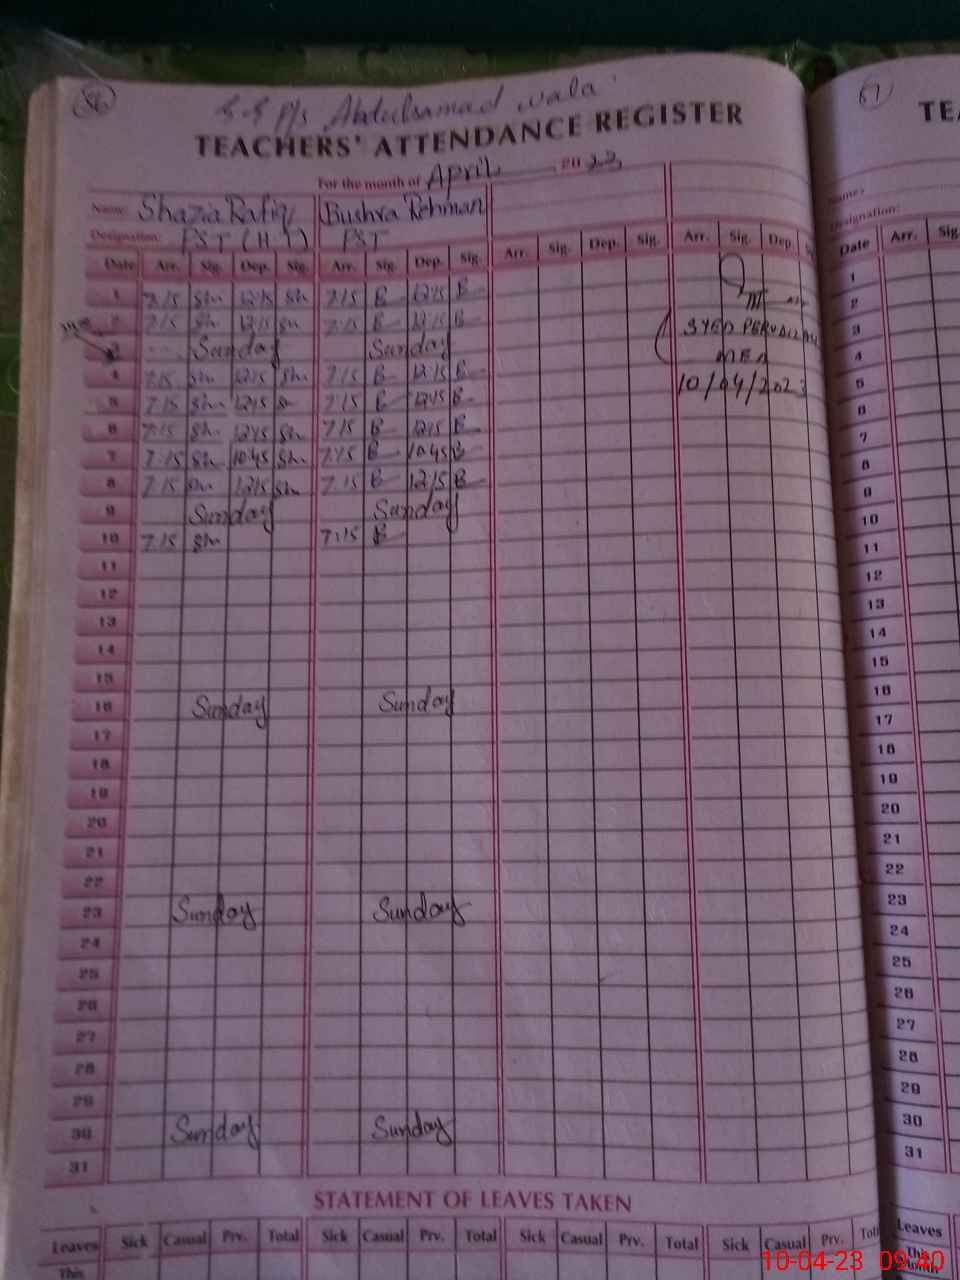 56
G.G P/s Abdulsamad wala
TEACHERS' ATTENDANCE REGISTER
For the month of April 20 23
Name: Shazia Rafiq Bushra Rehman
Designation: PST (H.T) PST
Date Arr. Sig. Dep. Sig. Arr. Sig. Dep. Sig. Arr. Sig. Dep. Sig. Arr. Sig. Dep.
1 7:15 Sh 12:15 Sh 7:15 B 12:15 B
2 7:15 Sh 12:15 Sh 7:15 B 12:15 B
3 Sunday Sunday
4 7:15 Sh 12:15 Sh 7:15 B 12:15 B
5 7:15 Sh 12:15 Sh 7:15 B 12:15 B
6 7:15 Sh 12:15 Sh 7:15 B 12:15 B
7 7:15 Sh 10:45 Sh 7:15 B 10:45 B
8 7:15 Sh 12:15 Sh 7:15 B 12:15 B
9 Sunday Sunday
10 7:15 Sh 7:15 B
11
12
13
14
15
16 Sunday Sunday
17
18
19
20
21
22
23 Sunday Sunday
24
25
26
27
28
29
30 Sunday Sunday
31
SYED
MEA
10/04/2023
STATEMENT OF LEAVES TAKEN
Leaves Sick Casual Prv. Total Sick Casual Prv. Total Sick Casual Prv. Total Sick Casual Prv.
This
57
Name:
Designation:
Date Arr.
1
2
3
4
5
6
7
8
9
10
11
12
13
14
15
16
17
18
19
20
21
22
23
24
25
26
27
28
29
30
31
Leaves
This
month
10-04-23 09:40